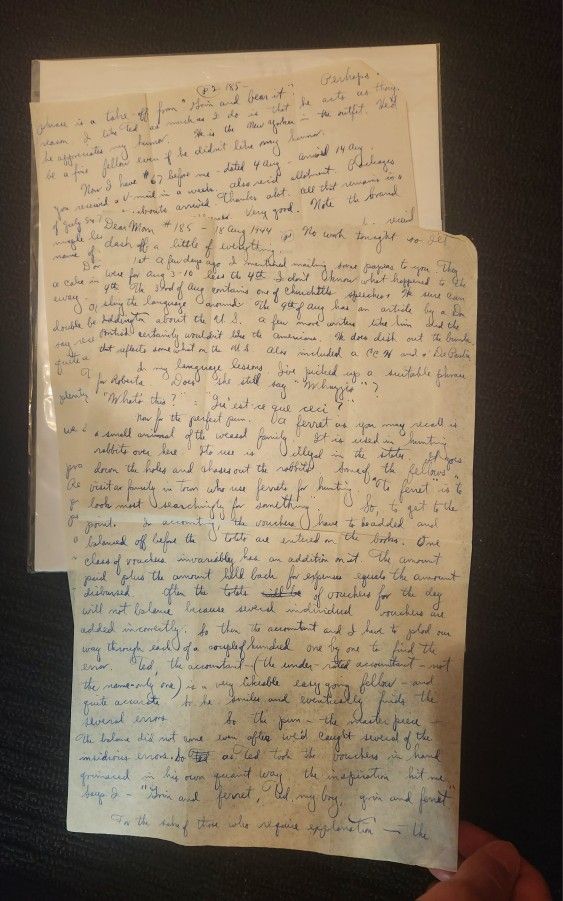 P2 185-
phrase is a take-off from "Grin and bear it". Perhaps
reason I like Ted as much as I do is that he acts as tho
he appreciates my humor. He is the New Yorker in the outfit. He'd
be a fine fellow even if he didn't like my humor.
Now I have #67 before me - dated 4 Aug - arrived 14 Aug.
you received a V-mail in a week. also rec'd allotment. Packages
of July arrived Thanks alot. all that remains is a
Very good. Note the brand
maybe
name of
Dear Mom #185 - 18 Aug 1944 No work tonight so I'll
dash off a little of everything.
1st A few days ago I mentioned mailing some papers to you. They
were for Aug 3-10 less the 4th. I don't know what happened to the
4th. The 3rd of Aug contains one of Churchill's speeches. He sure can
sling the language around. The 9th of Aug has an article by a Don
Iddington about the U.S. A few more writers like him and the
British certainly wouldn't like the Americans. He does dish out the bunk
that reflects somewhat on the U.S. Also included a CCH and a De Paulia
In my language lessons I've picked up a suitable phrase
for Roberta. Does she still say "Whazzis"?
"What's this?" - "Qu'est-ce que ceci?"
Now for the perfect pun. A ferret as you may recall is
a small animal of the weasel family. It is used in hunting
rabbits over here. Its use is illegal in the states. It goes
down the holes and chases out the rabbits. Some of the fellows
visit a family in town who use ferrets for hunting. "To ferret" is to
look most searchingly for something. So, to get to the
point. In accounting, the vouchers have to be added and
balanced off before the totals are entered on the books. One
class of vouchers invariably has an addition on it. The amount
paid plus the amount held back for expenses equals the amount
disbursed. Often the totals of vouchers for the day
will not balance because several individual vouchers are
added incorrectly. So then the accountant and I have to plod our
way through each of a couple of hundred one by one to find the
error. Ted, the accountant - (the under-rated accountant - not
the name-only one) is a very likeable easy going fellow - and
quite accurate so he smiles and eventually finds the
several errors. So the pun - the master piece -
The balance did not come even after we'd caught several of the
insidious errors. So as Ted took the vouchers in hand
grimaced in his own quaint way, the inspiration hit me
Says I - "Grin and ferret, Ted, my boy, grin and ferret"
For the sake of those who require explanation - the